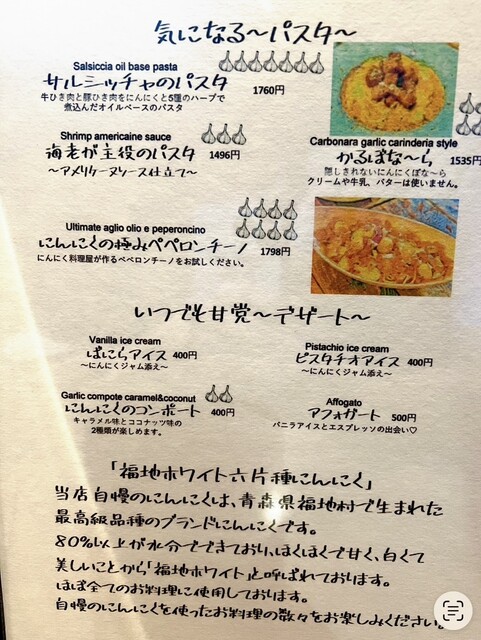 気になる～パスタ～
Salsiccia oil base pasta
サルシッチャのパスタ 1760円
牛ひき肉と豚ひき肉をにんにくと5種のハーブで
煮込んだオイルベースのパスタ
Shrimp americaine sauce
海老が主役のパスタ 1496円
～アメリケーヌソース仕立て～
Carbonara garlic carinderia style
かるぼな～ら 1535円
隠しきれないにんにくぼな～ら
クリームや牛乳、バターは使いません。
Ultimate aglio olio e peperoncino
にんにくの極みペペロンチーノ 1798円
にんにく料理屋が作るペペロンチーノをお試しください。
いつでも甘党～デザート～
Vanilla ice cream
ばにらアイス 400円
～にんにくジャム添え～
Pistachio ice cream
ピスタチオアイス 400円
～にんにくジャム添え～
Garlic compote caramel&coconut
にんにくのコンポート 400円
キャラメル味とココナッツ味の
2種類が楽しめます。
Affogato
アフォガート 500円
バニラアイスとエスプレッソの出会い♡
「福地ホワイト六片種にんにく」
当店自慢のにんにくは、青森県福地村で生まれた
最高級品種のブランドにんにくです。
80%以上が水分でできており、ほくほくで甘く、白くて
美しいことから「福地ホワイト」と呼ばれております。
ほぼ全てのお料理に使用しております。
自慢のにんにくを使ったお料理の数々をお楽しみください。